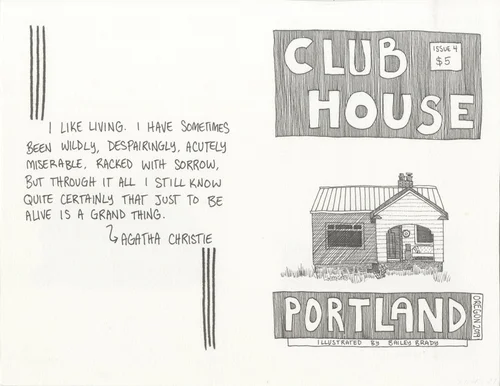 I LIKE LIVING. I HAVE SOMETIMES
BEEN WILDLY, DESPAIRINGLY, ACUTELY
MISERABLE, RACKED WITH SORROW,
BUT THROUGH IT ALL I STILL KNOW
QUITE CERTAINLY THAT JUST TO BE
ALIVE IS A GRAND THING.
AGATHA CHRISTIE
CLUB
HOUSE
ISSUE 4
$5
PORTLAND
OREGON 2019
ILLUSTRATED BY BAILEY BRADY